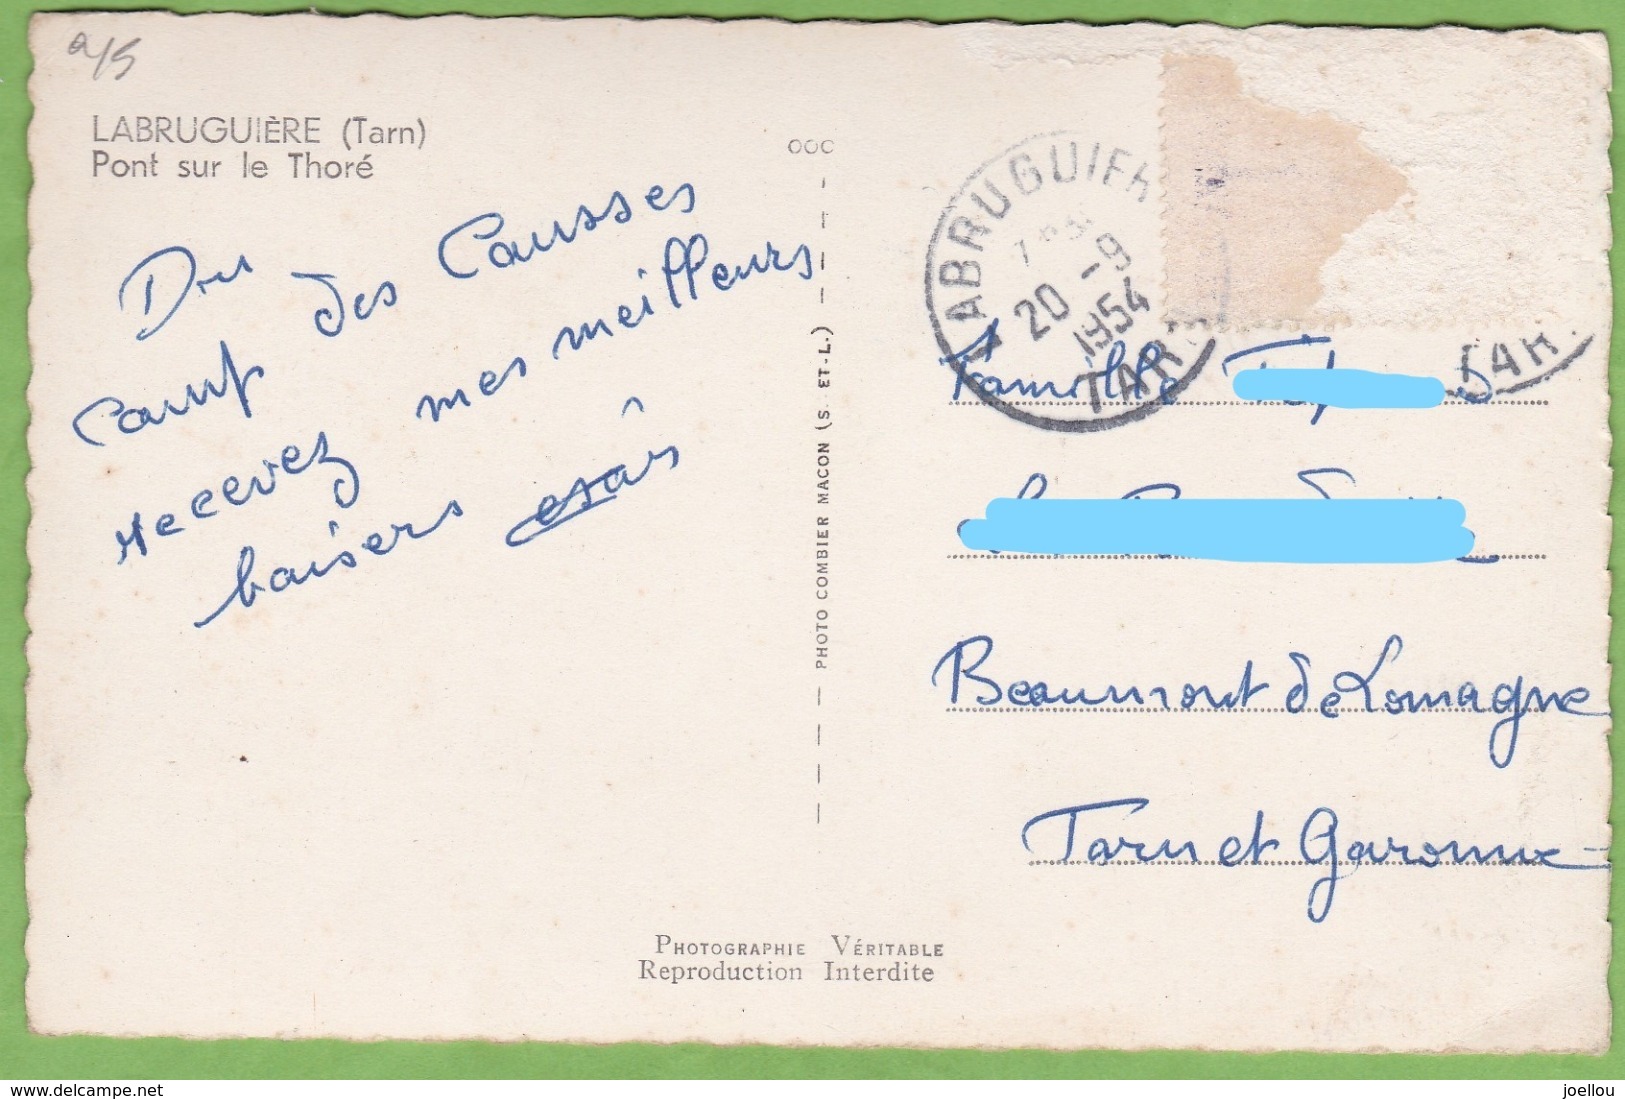 LABRUGUIÈRE (Tarn)
Pont sur le Thoré
Du
camp des Causses
recevez mes meilleurs
baisers
PHOTO COMBIER MACON (S. ET L.)
20 -9
1954
TAR
Famille
Beaumont de Lomagne
Tarn et Garonne
PHOTOGRAPHIE VÉRITABLE
Reproduction Interdite
delcampe.net
joellou